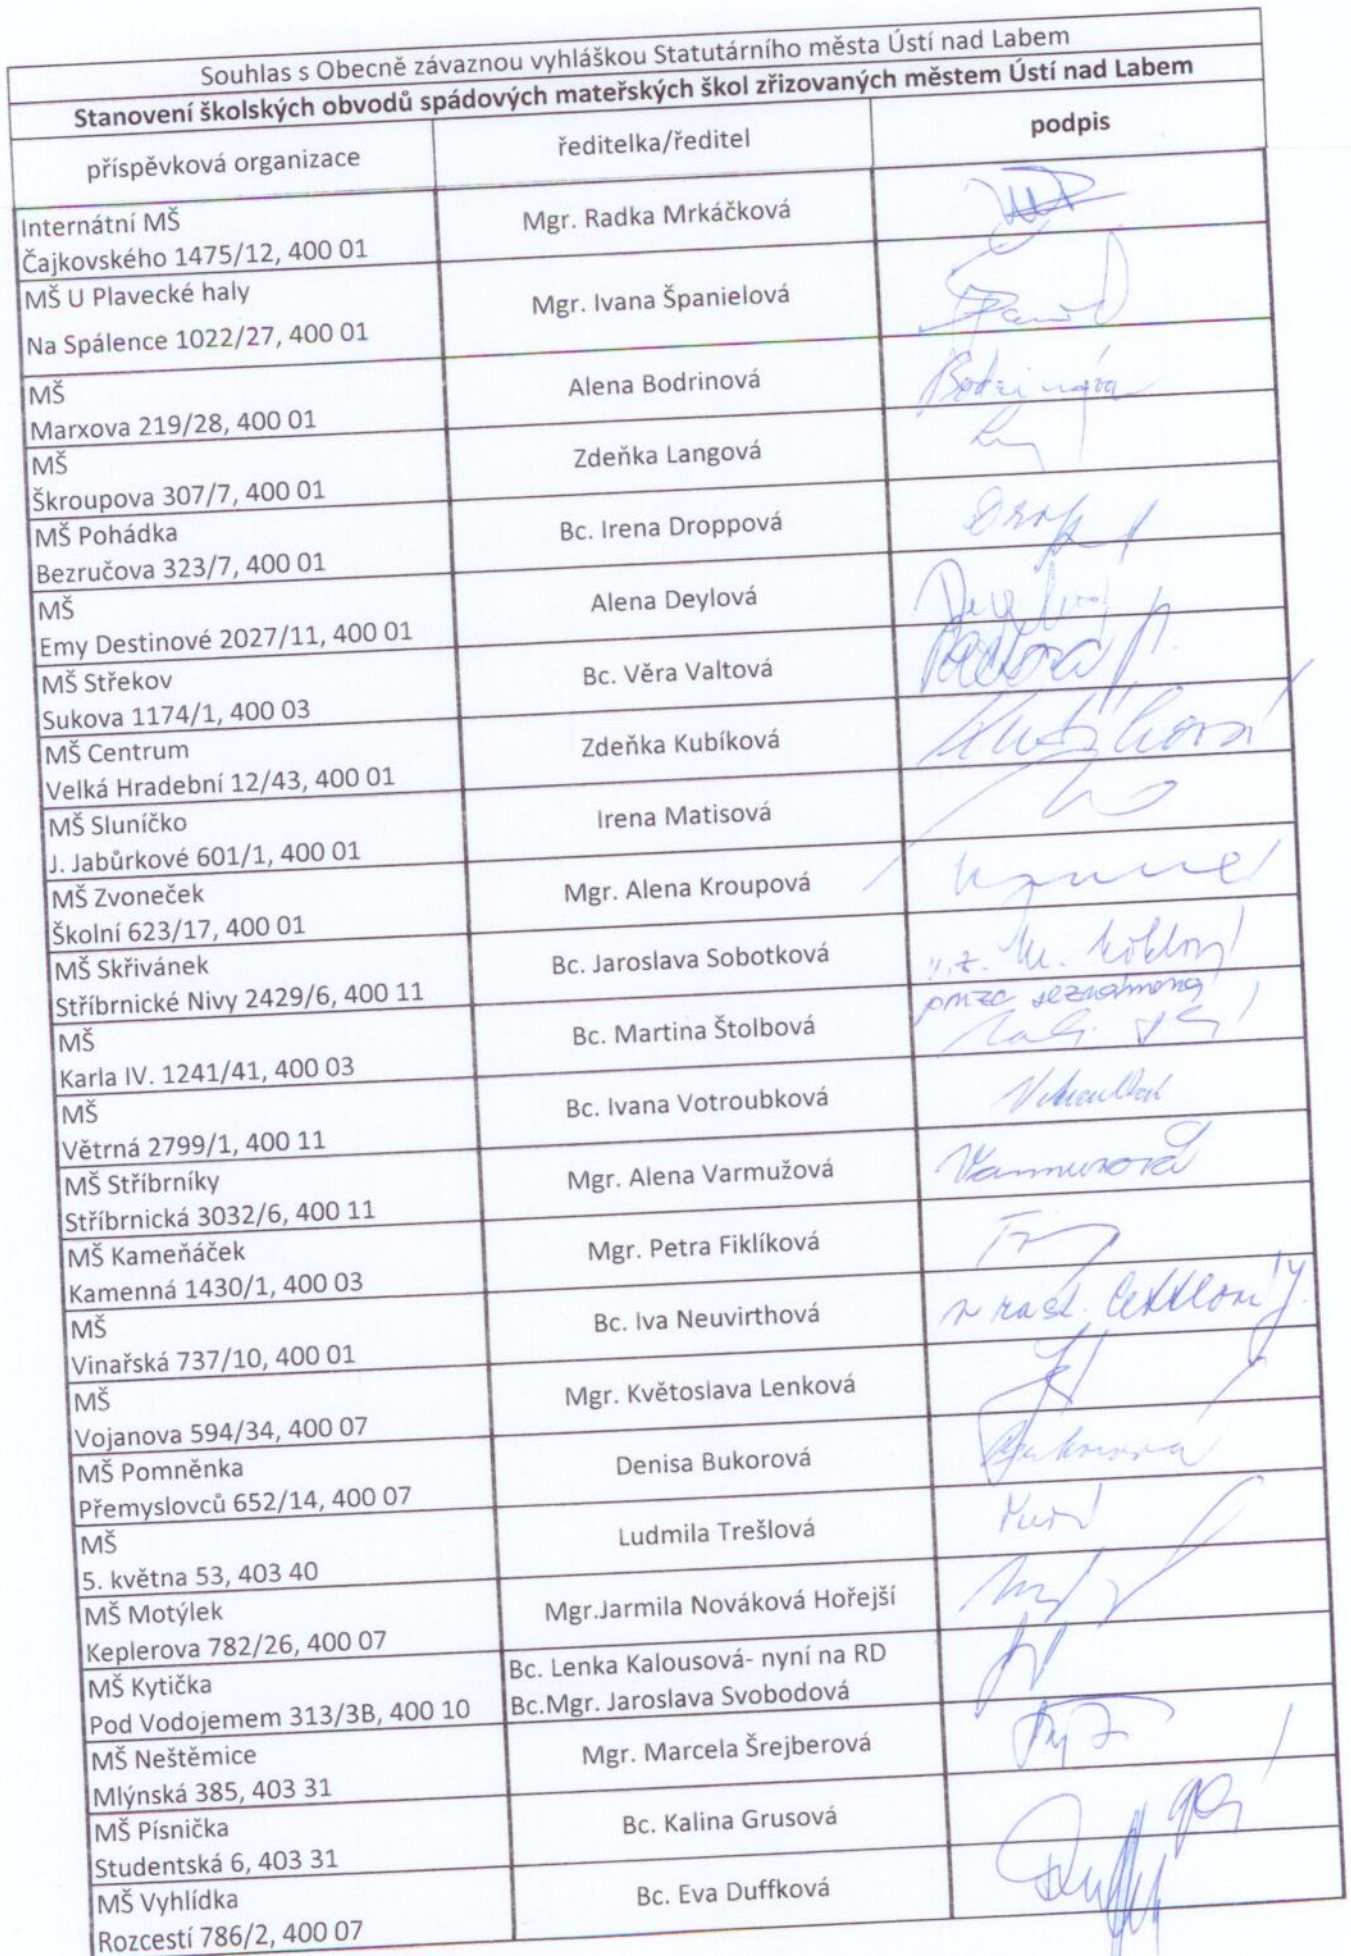 Souhlas s Obecně závaznou vyhláškou Statutárního města Ústí nad Labem
Stanovení školských obvodů spádových mateřských škol zřizovaných městem Ústí nad Labem
příspěvková organizace ředitelka/ředitel podpis
Internátní MŠ
Čajkovského 1475/12, 400 01
Mgr. Radka Mrkáčková
MŠ U Plavecké haly
Na Spálence 1022/27, 400 01
Mgr. Ivana Španielová
MŠ
Marxova 219/28, 400 01
Alena Bodrinová
Bodrinová
MŠ
Škroupova 307/7, 400 01
Zdeňka Langová
MŠ Pohádka
Bezručova 323/7, 400 01
Bc. Irena Droppová
MŠ
Emy Destinové 2027/11, 400 01
Alena Deylová
MŠ Střekov
Sukova 1174/1, 400 03
Bc. Věra Valtová
MŠ Centrum
Velká Hradební 12/43, 400 01
Zdeňka Kubíková
Kubíková
MŠ Sluníčko
J. Jabůrkové 601/1, 400 01
Irena Matisová
MŠ Zvoneček
Školní 623/17, 400 01
Mgr. Alena Kroupová
MŠ Skřivánek
Stříbrnické Nivy 2429/6, 400 11
Bc. Jaroslava Sobotková
MŠ
Karla IV. 1241/41, 400 03
Bc. Martina Štolbová
pouze seznámena
MŠ
Větrná 2799/1, 400 11
Bc. Ivana Votroubková
MŠ Stříbrníky
Stříbrnická 3032/6, 400 11
Mgr. Alena Varmužová
Varmužová
MŠ Kameňáček
Kamenná 1430/1, 400 03
Mgr. Petra Fiklíková
MŠ
Vinařská 737/10, 400 01
Bc. Iva Neuvirthová
MŠ
Vojanova 594/34, 400 07
Mgr. Květoslava Lenková
MŠ Pomněnka
Přemyslovců 652/14, 400 07
Denisa Bukorová
Bukorová
MŠ
5. května 53, 403 40
Ludmila Trešlová
MŠ Motýlek
Keplerova 782/26, 400 07
Mgr.Jarmila Nováková Hořejší
MŠ Kytička
Pod Vodojemem 313/3B, 400 10
Bc. Lenka Kalousová- nyní na RD
Bc.Mgr. Jaroslava Svobodová
MŠ Neštěmice
Mlýnská 385, 403 31
Mgr. Marcela Šrejberová
MŠ Písnička
Studentská 6, 403 31
Bc. Kalina Grusová
MŠ Vyhlídka
Rozcestí 786/2, 400 07
Bc. Eva Duffková